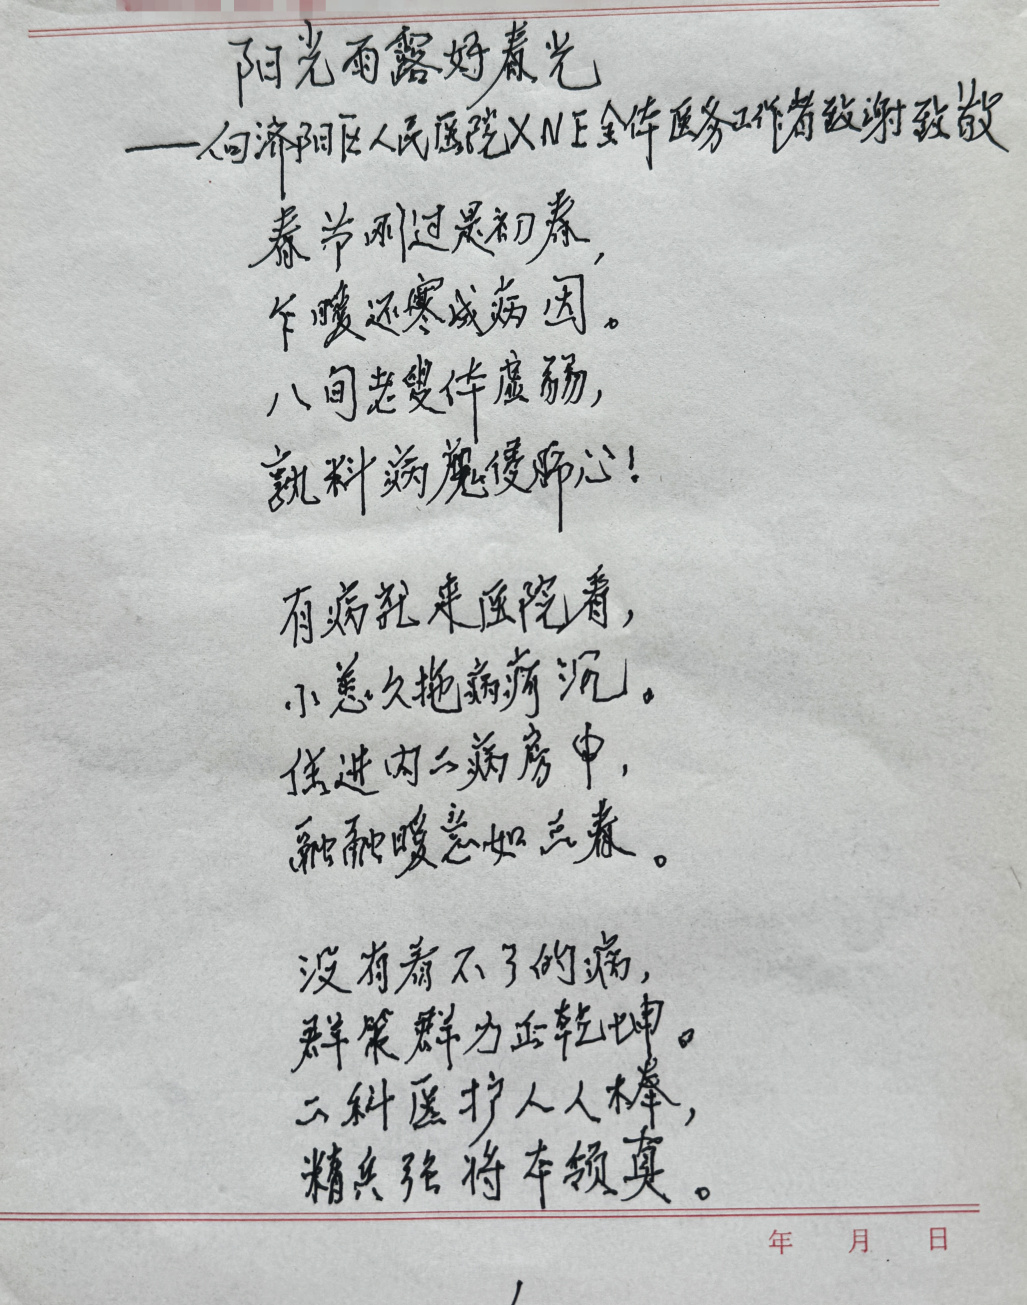 阳光雨露好春光
——向济阳区人民医院XNE全体医务工作者致谢致敬
春节刚过是初春,
乍暖还寒成病因。
八旬老叟体虚弱,
孰料病魔侵肺心!
有病就来医院看,
小恙久拖病疴沉。
住进内二病房中,
融融暖意如三春。
没有看不了的病,
群策群力正乾坤。
二科医护人人棒,
精兵强将本领真。
年 月 日
1